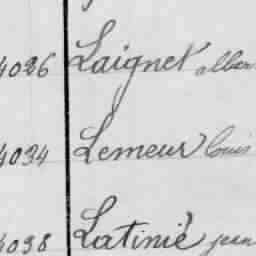 4026 Laignel alber
4034 Lemeur louis
4038 Latinié jean